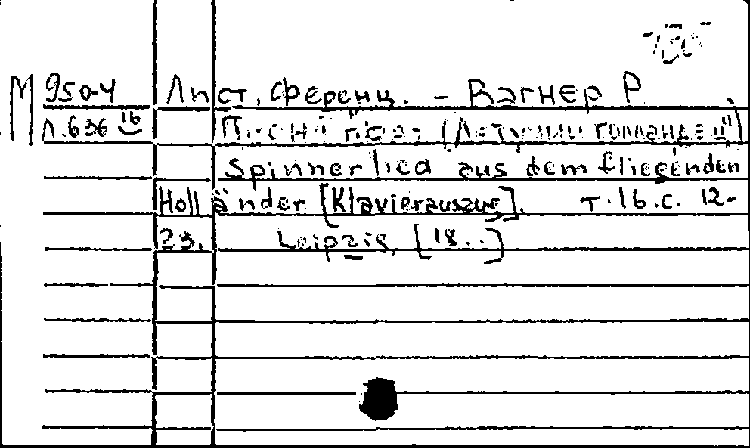 М 950-4 Лист, Ференц. – Вагнер Р.
Л.636 16 Песня прях (Летучий голландец)
Spinnerlied aus dem fliegenden
Holländer [Klavierauszug]. т.16.с. 12-
23. Leipzig, [18..]